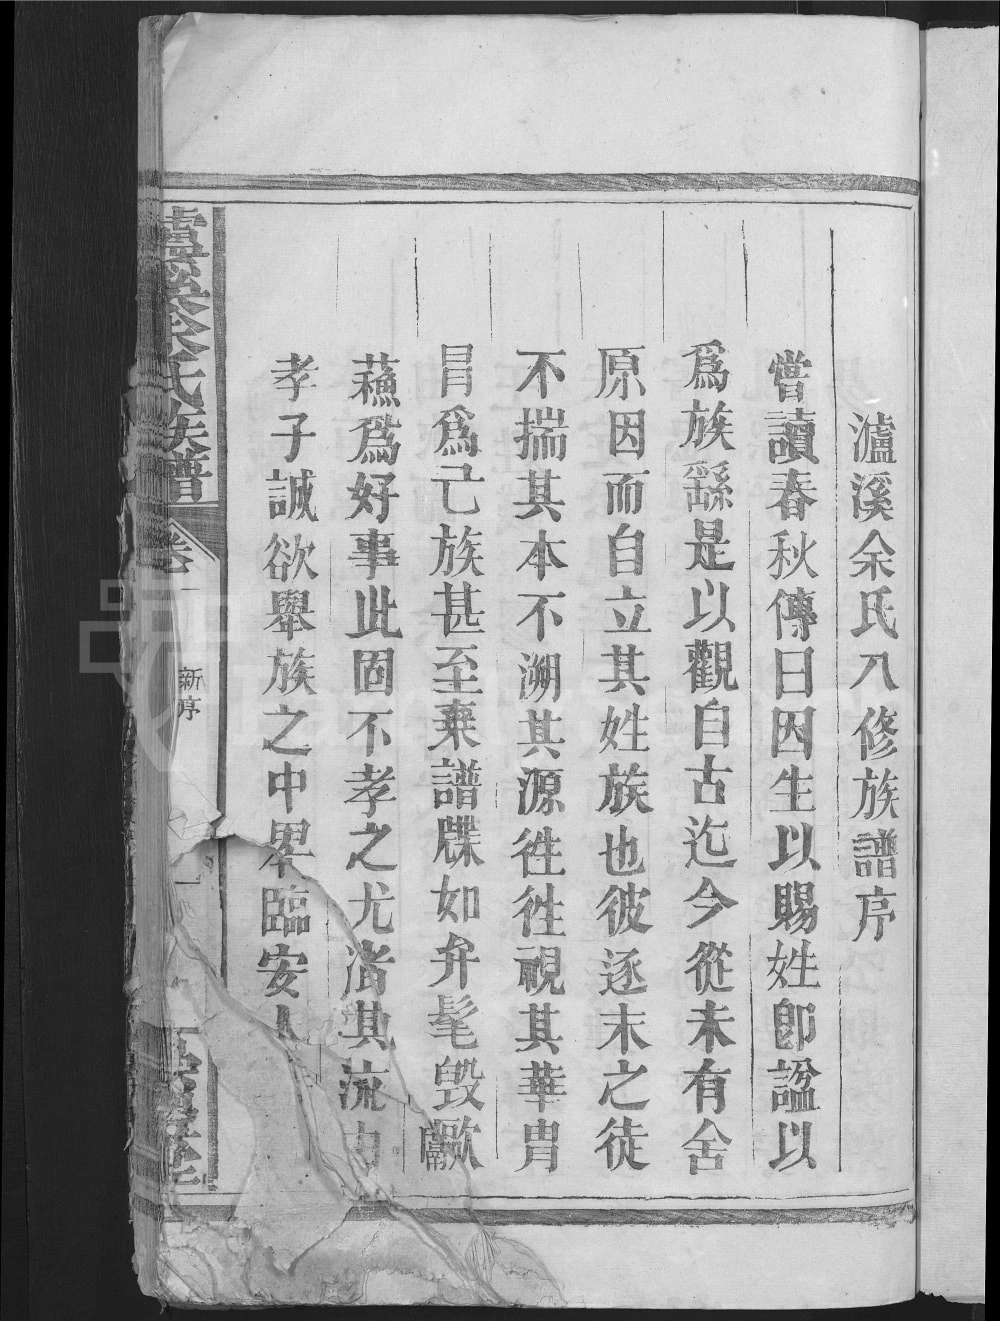 瀘溪余氏八修族譜序
嘗讀春秋傳曰因生以賜姓卽諡以
爲族繇是以觀自古迄今從未有舍
原因而自立其姓族也彼逐末之徒
不揣其本不溯其源徃徃視其華冑
冒爲己族甚至棄譜牒如弁髦毀
爲好事此固不孝之尤渚其流
孝子誠欲舉族之中畢臨安人
余氏族譜
卷一
新序
一